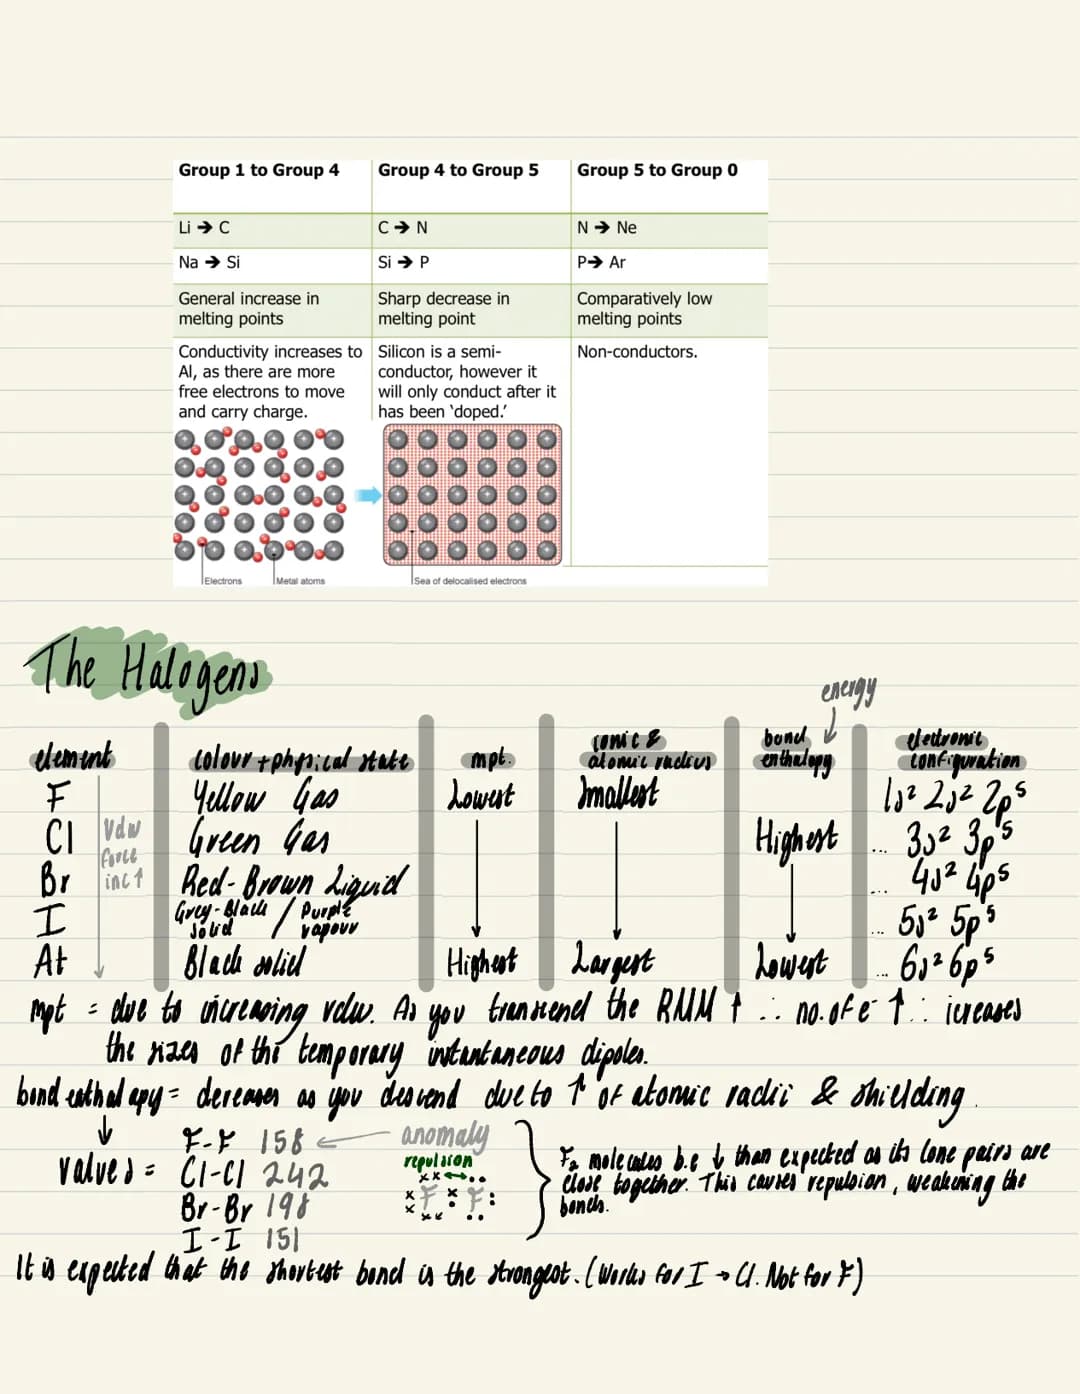 Group 1 to Group 4 Group 4 to Group 5 Group 5 to Group 0
Li → C C → N N → Ne
Na → Si Si → P P→ Ar
General increase in melting points
Sharp decrease in melting point
Comparatively low melting points
Conductivity increases to
Al, as there are more
free electrons to move
and carry charge.
Silicon is a semi-
conductor, however it
will only conduct after it
has been 'doped.'
Non-conductors.
Electrons Metal atoms Sea of delocalised electrons
The Halogens
energy
element colour + physical state mpt. ionic & atomic radius bond enthalpy electronic configuration
F Yellow Gas Lowest Smallest 1s² 2s² 2p⁵
Cl Green Gas Highest ... 3s² 3p⁵
Vdw force inc ↑
Br Red-Brown Liquid ... 4s² 4p⁵
I Grey-Black Solid / Purple vapour ... 5s² 5p⁵
At Black solid Highest Largest Lowest ... 6s² 6p⁵
mpt = due to increasing vdw. As you transcend the RMM ↑ ∴ no. of e⁻ ↑ ∴ icreases
the sizes of the temporary instantaneous dipoles.
bond enthalapy = decreases as you descend due to ↑ of atomic radii & shielding.
↓
values =
F-F 158 ← anomaly
Cl-Cl 242
Br-Br 198
I-I 151
repulsion
F F
F₂ molecules b.e ↓ than expected as its lone pairs are
close together. This causes repulsion, weakening the
bonds.
It is expected that the shortest bond is the strongest. (Works for I → Cl. Not for F)